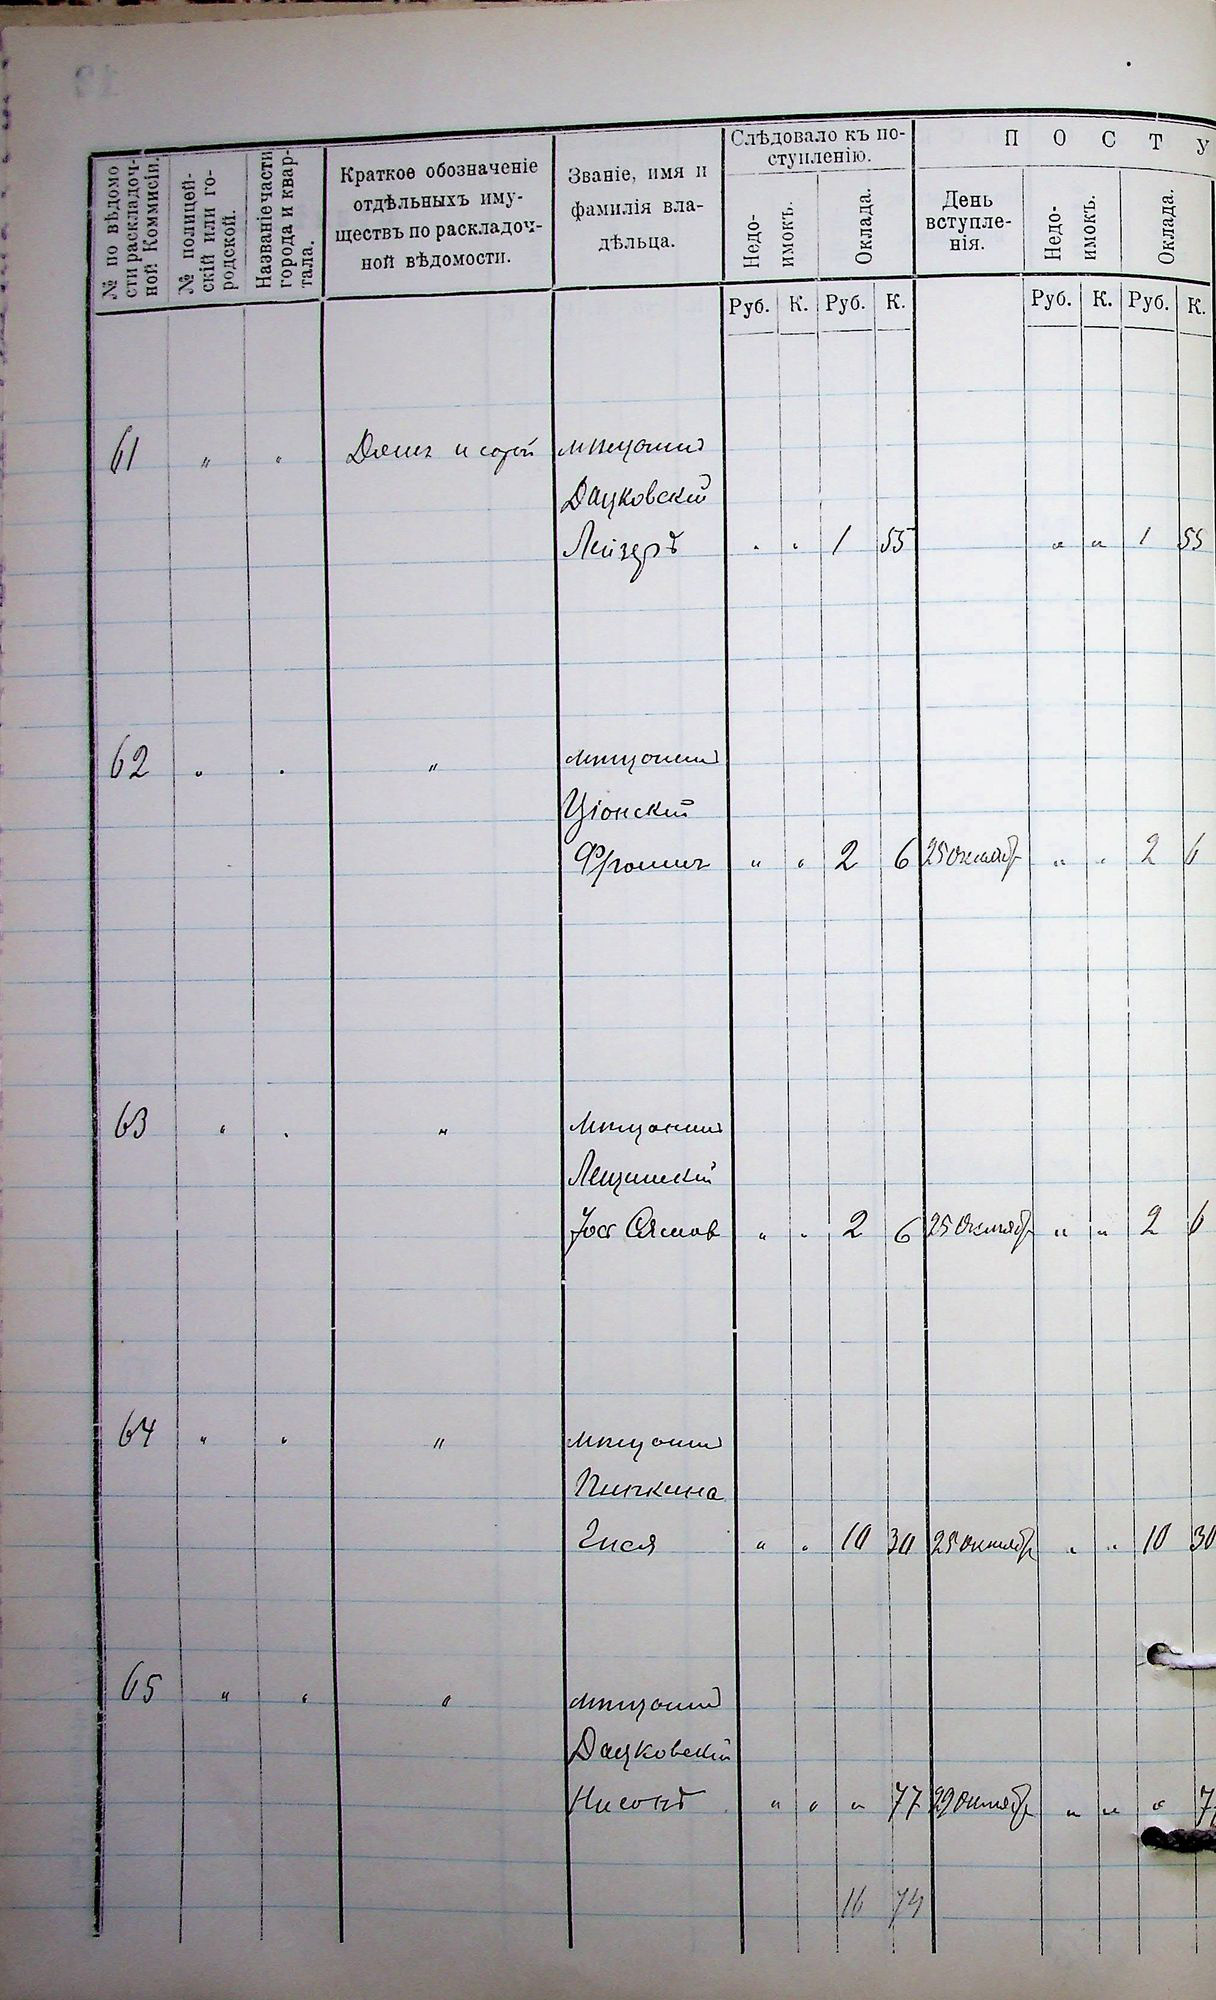 № по вѣдомо
сти раскладоч-
ной Коммисіи.
№ полицей-
скій или го-
родской.
Названіе части
города и квар-
тала.
Краткое обозначеніе
отдѣльныхъ иму-
ществъ по раскладоч-
ной вѣдомости.
Званіе, имя и
фамилія вла-
дѣльца.
Слѣдовало къ по-
ступленію.
Недо-
имокъ.
Оклада.
П О С Т У
День
вступле-
нія.
Недо-
имокъ.
Оклада.
Руб. К. Руб. К. Руб. К. Руб. К.
61 " " Домъ и сарай мѣщанинъ
Дацковскій
Лейзеръ " " 1 55 " " 1 55
62 " " " мѣщанинъ
Ціонскій
" " 2 6 25 Октябр " " 2 6
63 " " " мѣщанинъ
Лещинскій
" " 2 6 25 Октябр " " 2 6
64 " " " мѣщанин
Пипкина
" " 10 30 25 Октябр " " 10 30
65 " " " мѣщанинъ
Дацковскій
Нисонъ " " " 77 29 Октябр " " "
16 74